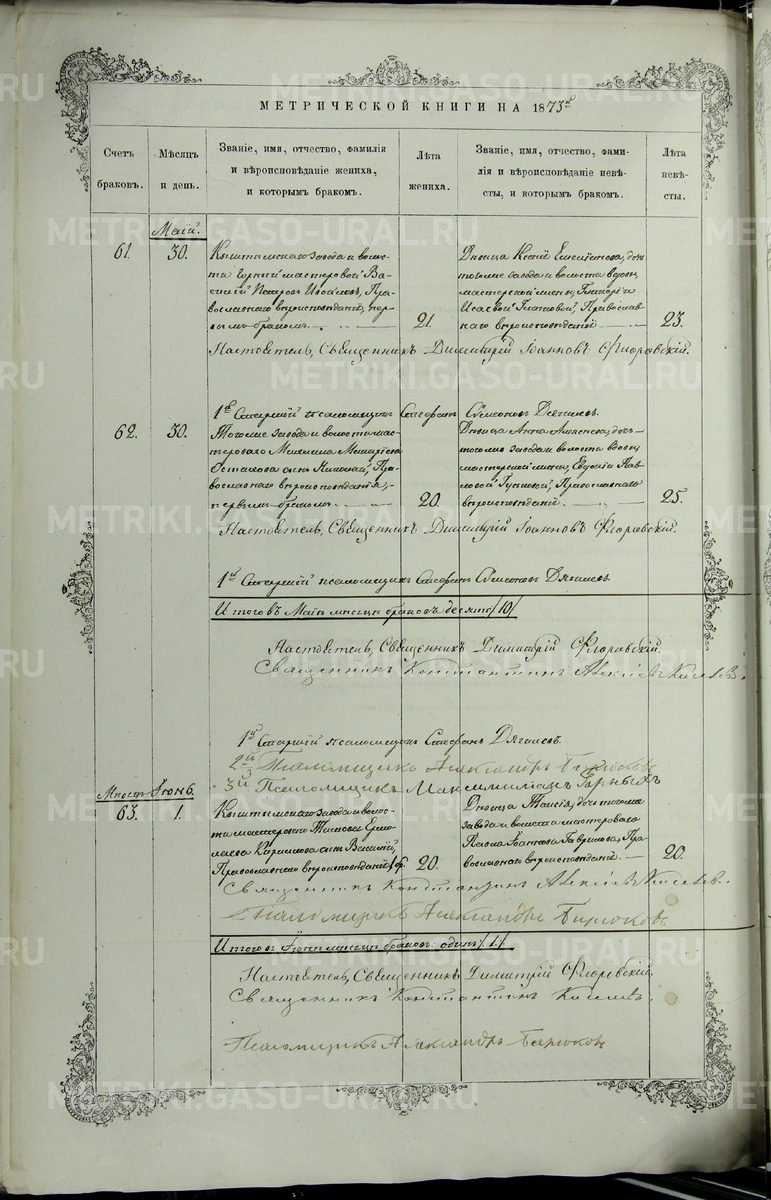 МЕТРИЧЕСКОЙ КНИГИ НА 1873й
Счетъ
браковъ.
Мѣсяцъ
и день.
Званіе, имя, отчество, фамилія
и вѣроисповѣданіе жениха,
и которымъ бракомъ.
Лѣта
жениха.
Званіе, имя, отчество, фами-
лія и вѣроисповѣданіе невѣ-
сты, и которымъ бракомъ.
Лѣта
невѣ-
сты.
Маій.
61.
30.
Кыштымскаго завода и волос-
ти Горный мастеровой Ва-
силій Петровъ, Пра-
вославнаго вѣроисповѣданія, пер-
вымъ бракомъ.
21.
Дѣвица Емельянова, доч
тогоже завода и волости вдовы,
мастерской жены, Гликеріи
Исаевой, Православ-
наго вѣроисповѣданія
23.
Настоятель, Священникъ Димитрій Іоанновъ Флоровскій.
1й Старшій псаломщикъ Стефанъ Сѵмеоновъ Дягилевъ.
62.
30.
Тогоже завода и волости мас-
тероваго Михаила
сынъ Николай, Пра-
вославнаго вѣроисповѣданія,
первымъ бракомъ
20.
Дѣвица Анна, доч
тогоже завода и волости вдовы,
мастерской жены, Евдокіи Пав-
ловой, Православнаго
вѣроисповѣданія.
25.
Настоятель, Священникъ Димитрій Іоанновъ Флоровскій.
1й Старшій псаломщикъ Стефанъ Сѵмеоновъ Дягилевъ
Итого въ Маіи мѣсяцѣ браковъ десять /10/
Настоятель, Священникъ Димитрій Флоровскій.
Священникъ Константинъ Алексѣевъ Киселевъ.
1й Старшій псаломщикъ Стефанъ Дягилевъ.
2й Псаломщикъ Александръ Бирюковъ
3й Псаломщикъ Максимиліанъ Горныхъ
Мѣсяцъ Іюнь.
63.
1.
Кыштымскаго завода и волос-
ти мастероваго Тимофея Ермо-
лаева Кирилова сынъ Василій,
Православнаго вѣроисповѣданія
20.
Дѣвица Таисія, дочь тогоже
завода и волости мастероваго
Павла Гаврилова, Пра-
вославнаго вѣроисповѣданія.
20.
Священникъ Константинъ Алексѣевъ Киселевъ.
Псаломщикъ Александръ Бирюковъ
Итого въ Іюнѣ мѣсяцѣ браковъ: одинъ /1/
Настоятель, Священникъ Димитрій Флоровскій.
Священникъ Константинъ Киселевъ.
Псаломщикъ Александръ Бирюковъ
METRIKI.GASO-URAL.RU